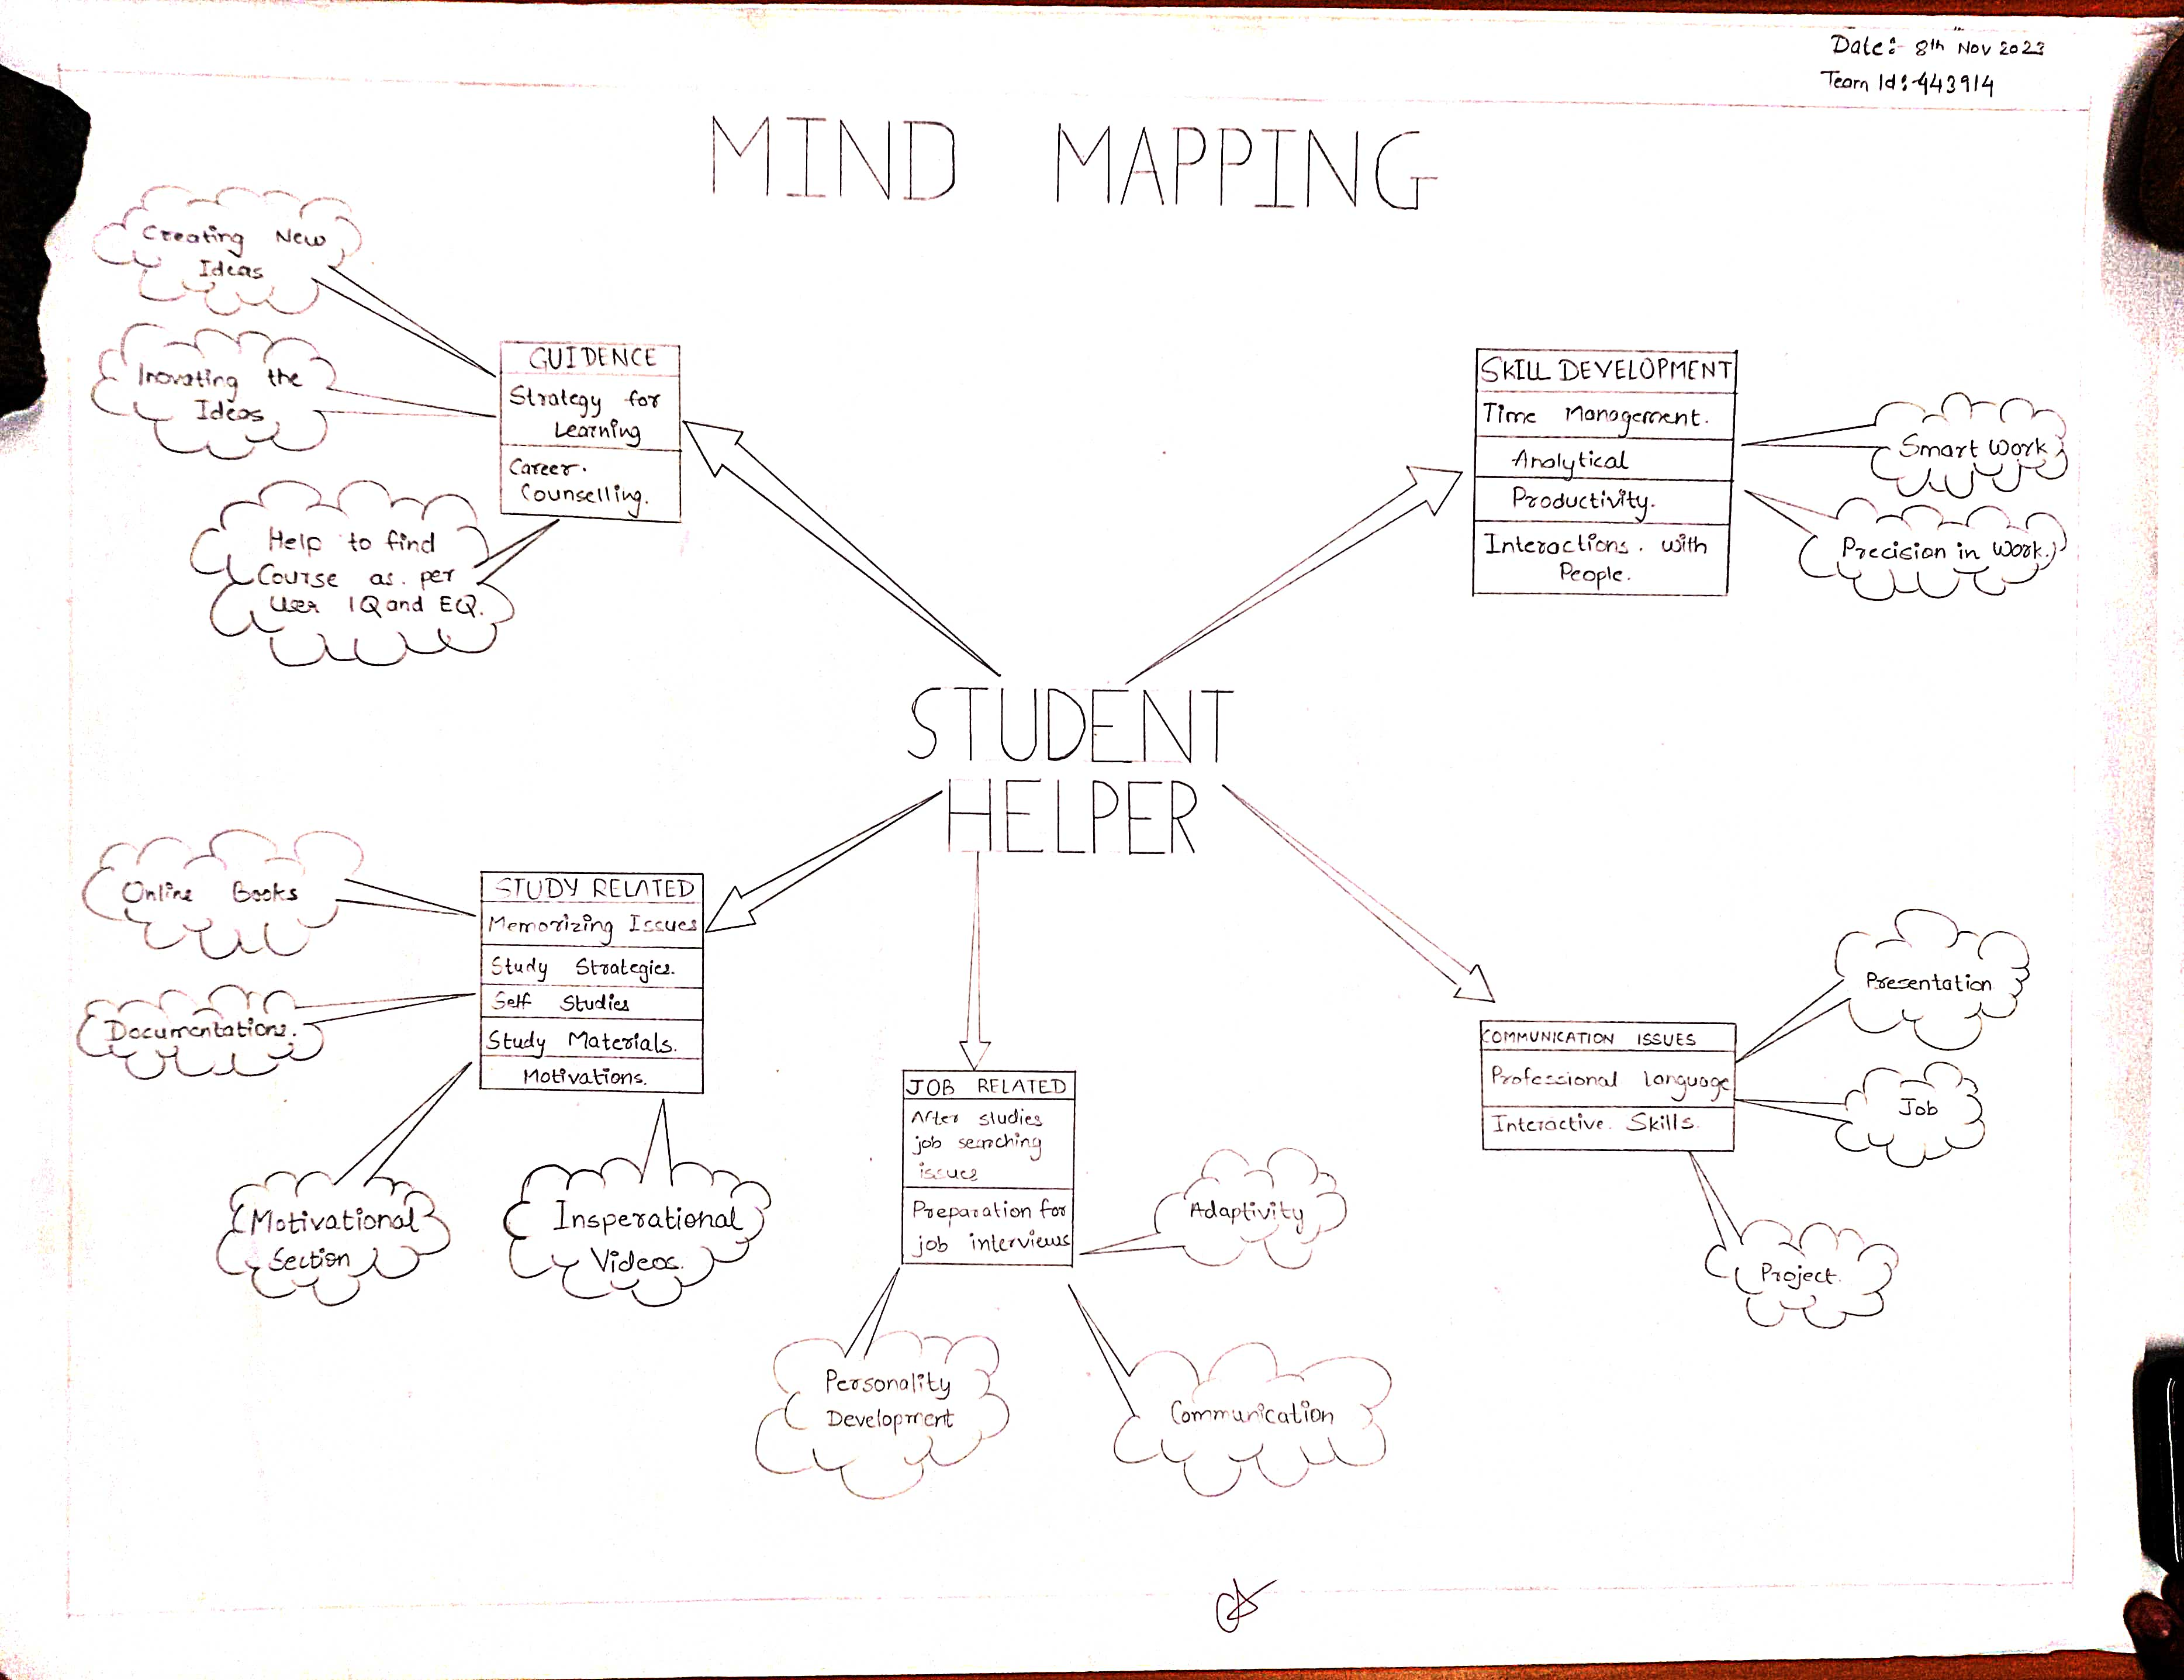 Date:- 8th Nov 2023
Team Id:-443914
MIND MAPPING
Creating New
Ideas
Inovating the
Ideas
Help to find
Course as. per
User IQ and EQ.
GUIDENCE
Strategy for
Learning
Career.
Counselling.
SKILL DEVELOPMENT
Time Management.
Analytical
Productivity.
Interactions. with
People.
Smart Work
Precision in Work.
STUDENT
HELPER
Online Books
Documentations.
STUDY RELATED
Memorizing Issues
Study Strategies.
Self Studies
Study Materials.
Motivations.
Motivational
Section
Insperational
Videos.
JOB RELATED
After studies
job searching
issues
Preparation for
job interviews
Adaptivity
Personality
Development
Communication
COMMUNICATION ISSUES
Professional language
Interactive. Skills.
Presentation
Job
Project.